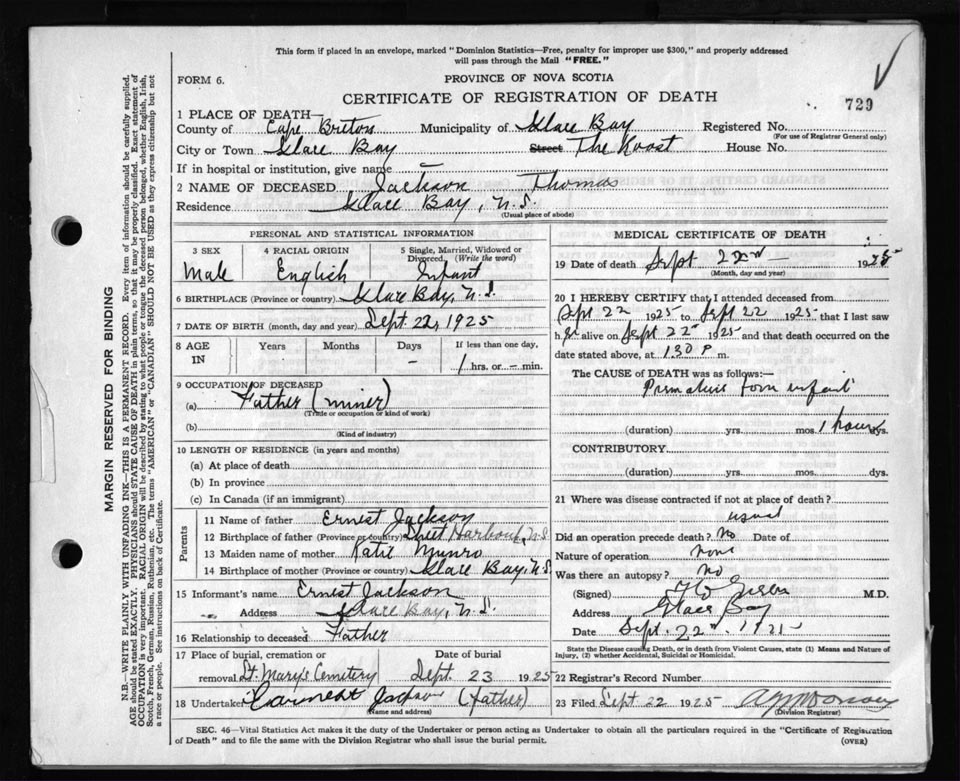 This form if placed in an envelope, marked "Dominion Statistics—Free, penalty for improper use $300," and properly addressed
will pass through the Mail "FREE."
FORM 6.
PROVINCE OF NOVA SCOTIA
CERTIFICATE OF REGISTRATION OF DEATH
729
1 PLACE OF DEATH—
County of Cape Breton Municipality of Glace Bay Registered No.
(For use of Registrar General only)
City or Town Glace Bay Street The Roost House No.
If in hospital or institution, give name —
2 NAME OF DECEASED Jackson Thomas
Residence Glace Bay, N.S.
(Usual place of abode)
PERSONAL AND STATISTICAL INFORMATION
3 SEX 4 RACIAL ORIGIN 5 Single, Married, Widowed or Divorced, (Write the word)
Male English Infant
6 BIRTHPLACE (Province or country) Glace Bay, N.S.
7 DATE OF BIRTH (month, day and year) Sept. 22, 1925
8 AGE IN Years Months Days If less than one day,
– 1 hrs. or – min.
9 OCCUPATION OF DECEASED
(a) Father (miner)
(Trade or occupation or kind of work)
(b)
(Kind of industry)
10 LENGTH OF RESIDENCE (in years and months)
(a) At place of death
(b) In province
(c) In Canada (if an immigrant)
Parents
11 Name of father Ernest Jackson
12 Birthplace of father (Province or country) Sheet Harbour, N.S
13 Maiden name of mother Katie Munro
14 Birthplace of mother (Province or country) Glace Bay, N.S.
15 Informant's name Ernest Jackson
Address Glace Bay, N.S.
16 Relationship to deceased Father
17 Place of burial, cremation or Date of burial
removal St. Mary's Cemetery Sept 23 1925
18 Undertaker Earnest Jackson (father)
(Name and address)
MEDICAL CERTIFICATE OF DEATH
19 Date of death Sept 22nd 1925
(Month, day and year)
20 I HEREBY CERTIFY that I attended deceased from
Sept 22 1925 to Sept 22 1925 that I last saw
h alive on Sept 22 1925 and that death occurred on the
date stated above, at 1.30 P m.
The CAUSE OF DEATH was as follows:—
infant
(duration) yrs. mos. 1 hour dys.
CONTRIBUTORY
(duration) yrs. mos. dys.
21 Where was disease contracted if not at place of death?
usual
Did an operation precede death? No Date of
Nature of operation none
Was there an autopsy? No
(Signed) M.D.
Address Glace Bay
Date Sept. 22nd 1925
State the Disease causing Death, or in death from Violent Causes, state (1) Means and Nature of
Injury, (2) whether Accidental, Suicidal or Homicidal.
22 Registrar's Record Number
23 Filed Sept 22 1925
(Division Registrar)
SEC. 46—Vital Statistics Act makes it the duty of the Undertaker or person acting as Undertaker to obtain all the particulars required in the "Certificate of Registration
of Death" and to file the same with the Division Registrar who shall issue the burial permit.
(OVER)
MARGIN RESERVED FOR BINDING
N.B.—WRITE PLAINLY WITH UNFADING INK—THIS IS A PERMANENT RECORD. Every item of information should be carefully supplied.
AGE should be stated EXACTLY. PHYSICIANS should STATE CAUSE OF DEATH in plain terms, so that it may be properly classified. Exact statement of
OCCUPATION is very important. RACIAL ORIGIN will be described by stating to what people or race the deceased person belonged, whether English, Irish,
Scotch, French, German, Russian, Ruthenian, etc. The terms "AMERICAN" or "CANADIAN" SHOULD NOT BE USED as they express citizenship but not
a race or people. See instructions on back of Certificate.